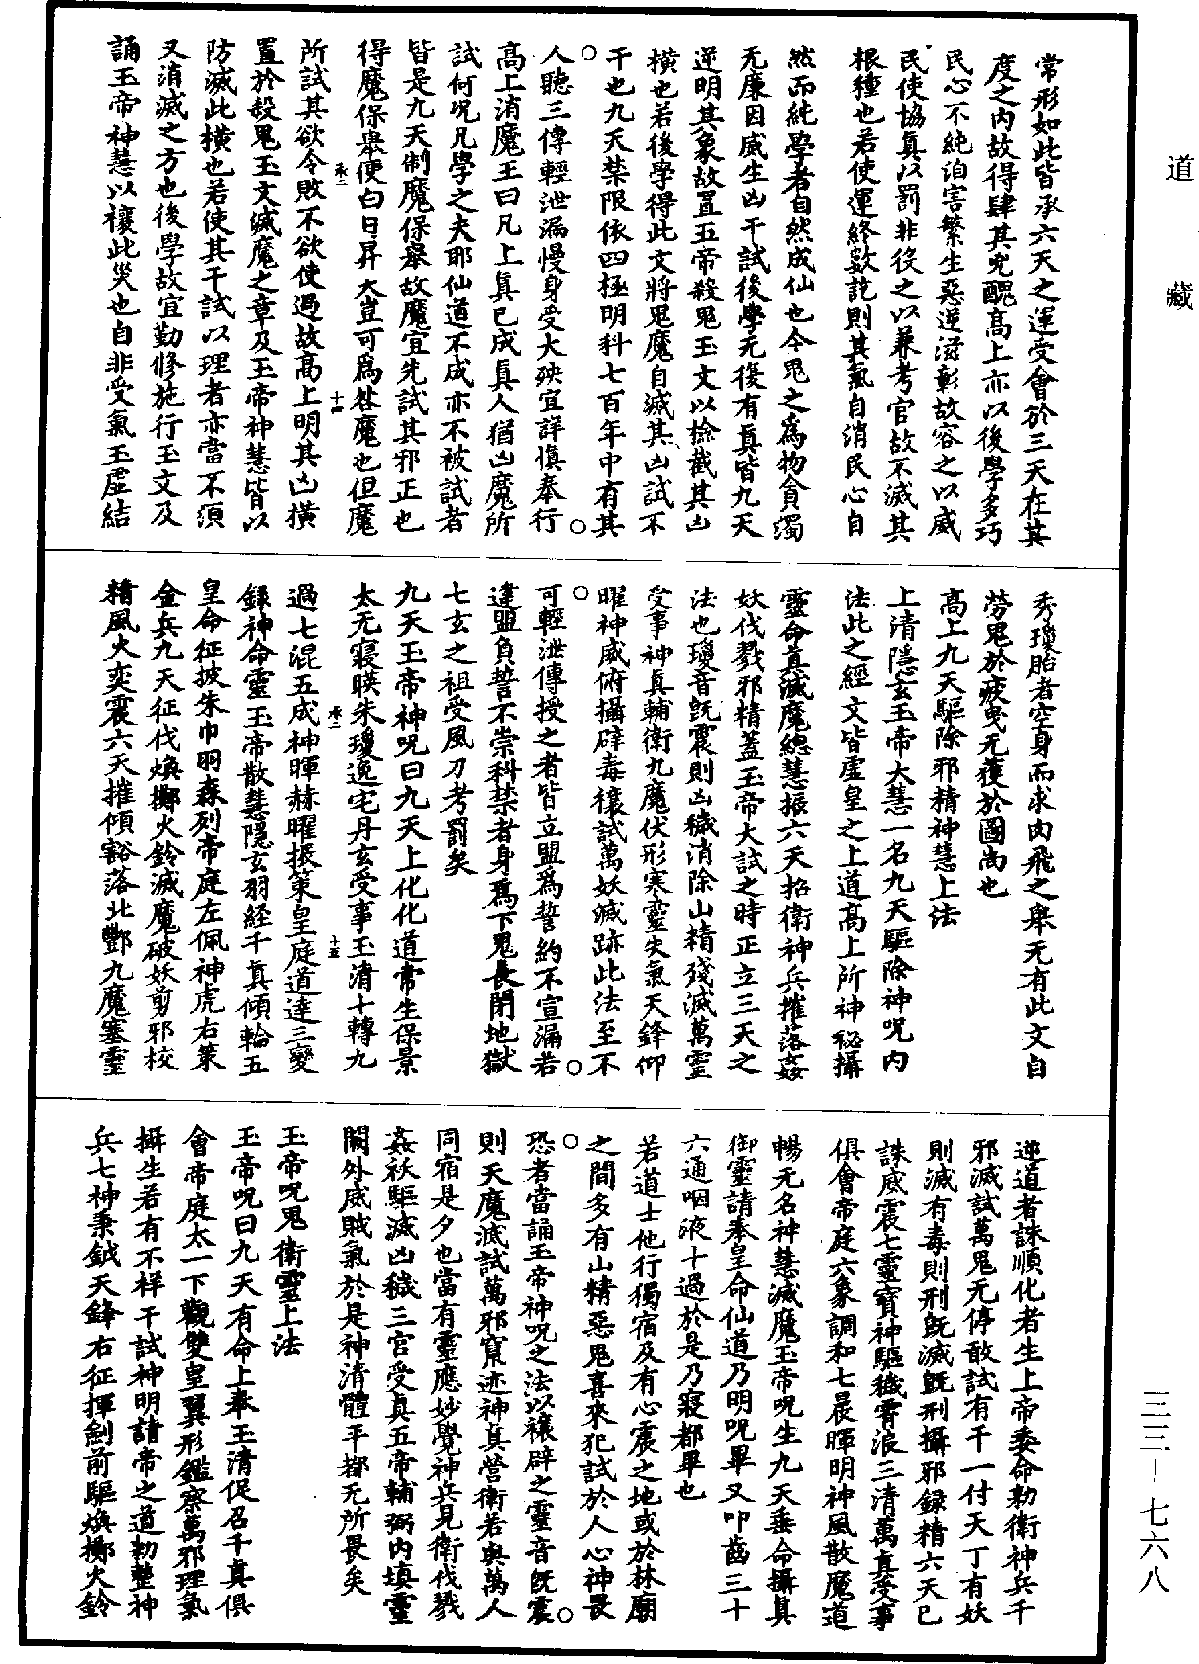 道藏
常形如此皆承六天之運受會於三天在其
度之內故得肆其兇醜高上亦以後學多巧
民心不純洎害繁生惡逆滋彰故容之以威
民使協真以罰非役之以兼考官故不滅其
根種也若使運終數訖則其氣自消民心自
然而純學者自然成仙也今鬼之為物貪濁
无廉因威生凶干試後學无復有真皆九天
逆明其象故置五帝殺鬼玉文以檢截其凶
橫也若後學得此文將鬼魔自滅其凶試不
干也九天禁限依四極明科七百年中有其
人聽三傳輕泄漏慢身受大殃宜詳慎奉行
高上消魔王曰凡上真已成真人猶凶魔所
試何況凡學之夫耶仙道不成亦不被試者
皆是九天制魔保舉故魔宜先試其邪正也
得魔保舉便白日昇天豈可為咎魔也但魔
承二 十四
所試其欲令敗不欲使過故高上明其凶橫
置於殺鬼玉文滅魔之章及玉帝神慧皆以
防滅此橫也若使其干試以理者亦當不須
又消滅之方也後學故宜勤修施行玉文及
誦玉帝神慧以禳此災也自非受氣玉虛結
秀瓊胎者空身而求內飛之舉无有此文自
勞鬼於疲曳无獲於圖尚也
高上九天驅除邪精神慧上法
上清隱玄玉帝大慧一名九天驅除神呪內
法此之經文皆虛皇之上道高上所神祕攝
靈命真滅魔總慧振六天招衛神兵摧落姦
妖伐戮邪精蓋玉帝大試之時正立三天之
法也瓊音既震則凶穢消除山精殘滅萬靈
受事神真輔衛九魔伏形寒靈失氣天鋒仰
曜神威俯攝辟毒禳試萬妖滅跡此法至不
可輕泄傳授之者皆立盟為誓約不宣漏若
違盟負誓不崇科禁者身為下鬼長閉地獄
七玄之祖受風刀考罰矣
九天玉帝神呪曰九天上化化道常生保景
太无寢暎朱瓊逸宅丹玄受事玉清十轉九
承二 十五
過七混五成神暉赫曜振策皇庭道達三變
錄神命靈玉帝散慧隱玄羽經千真傾輪五
皇命征披朱巾羽森列帝庭左佩神虎右策
金兵九天征伐煥擲火鈴滅魔破妖剪邪校
精風火奕震六天摧傾豁落北酆九魔塞靈
逆道者誅順化者生上帝委命勑衛神兵千
邪滅試萬鬼无停敢試有千一付天丁有妖
則滅有毒則刑既滅既刑攝邪錄精六天已
誅威震七靈寶神驅穢霄浪三清萬真受事
俱會帝庭六象調和七晨暉明神風散魔道
暢无名神慧滅魔玉帝呪生九天垂命攝真
御靈請奉皇命仙道乃明呪畢又叩齒三十
六通咽液十過於是乃寢都畢也
若道士他行獨宿及有心震之地或於林廟
之間多有山精惡鬼喜來犯試於人心神畏
恐者當誦玉帝神呪之法以禳辟之靈音既震
則天魔滅試萬邪竄迹神真營衛若與萬人
同宿是夕也當有靈應妙覺神兵見衛伐戮
姦袄驅滅凶穢三官受真五帝輔弼內填靈
闕外威賊氣於是神清體平都无所畏矣
玉帝呪鬼衛靈上法
玉帝呪曰九天有命上奉玉清促召千真俱
會帝庭太一下觀雙皇翼形鑑察萬邪理氣
攝生若有不祥干試神明請帝之道勑整神
兵七神秉鉞天鋒右征揮劍前驅煥擲火鈴
三三—七六八